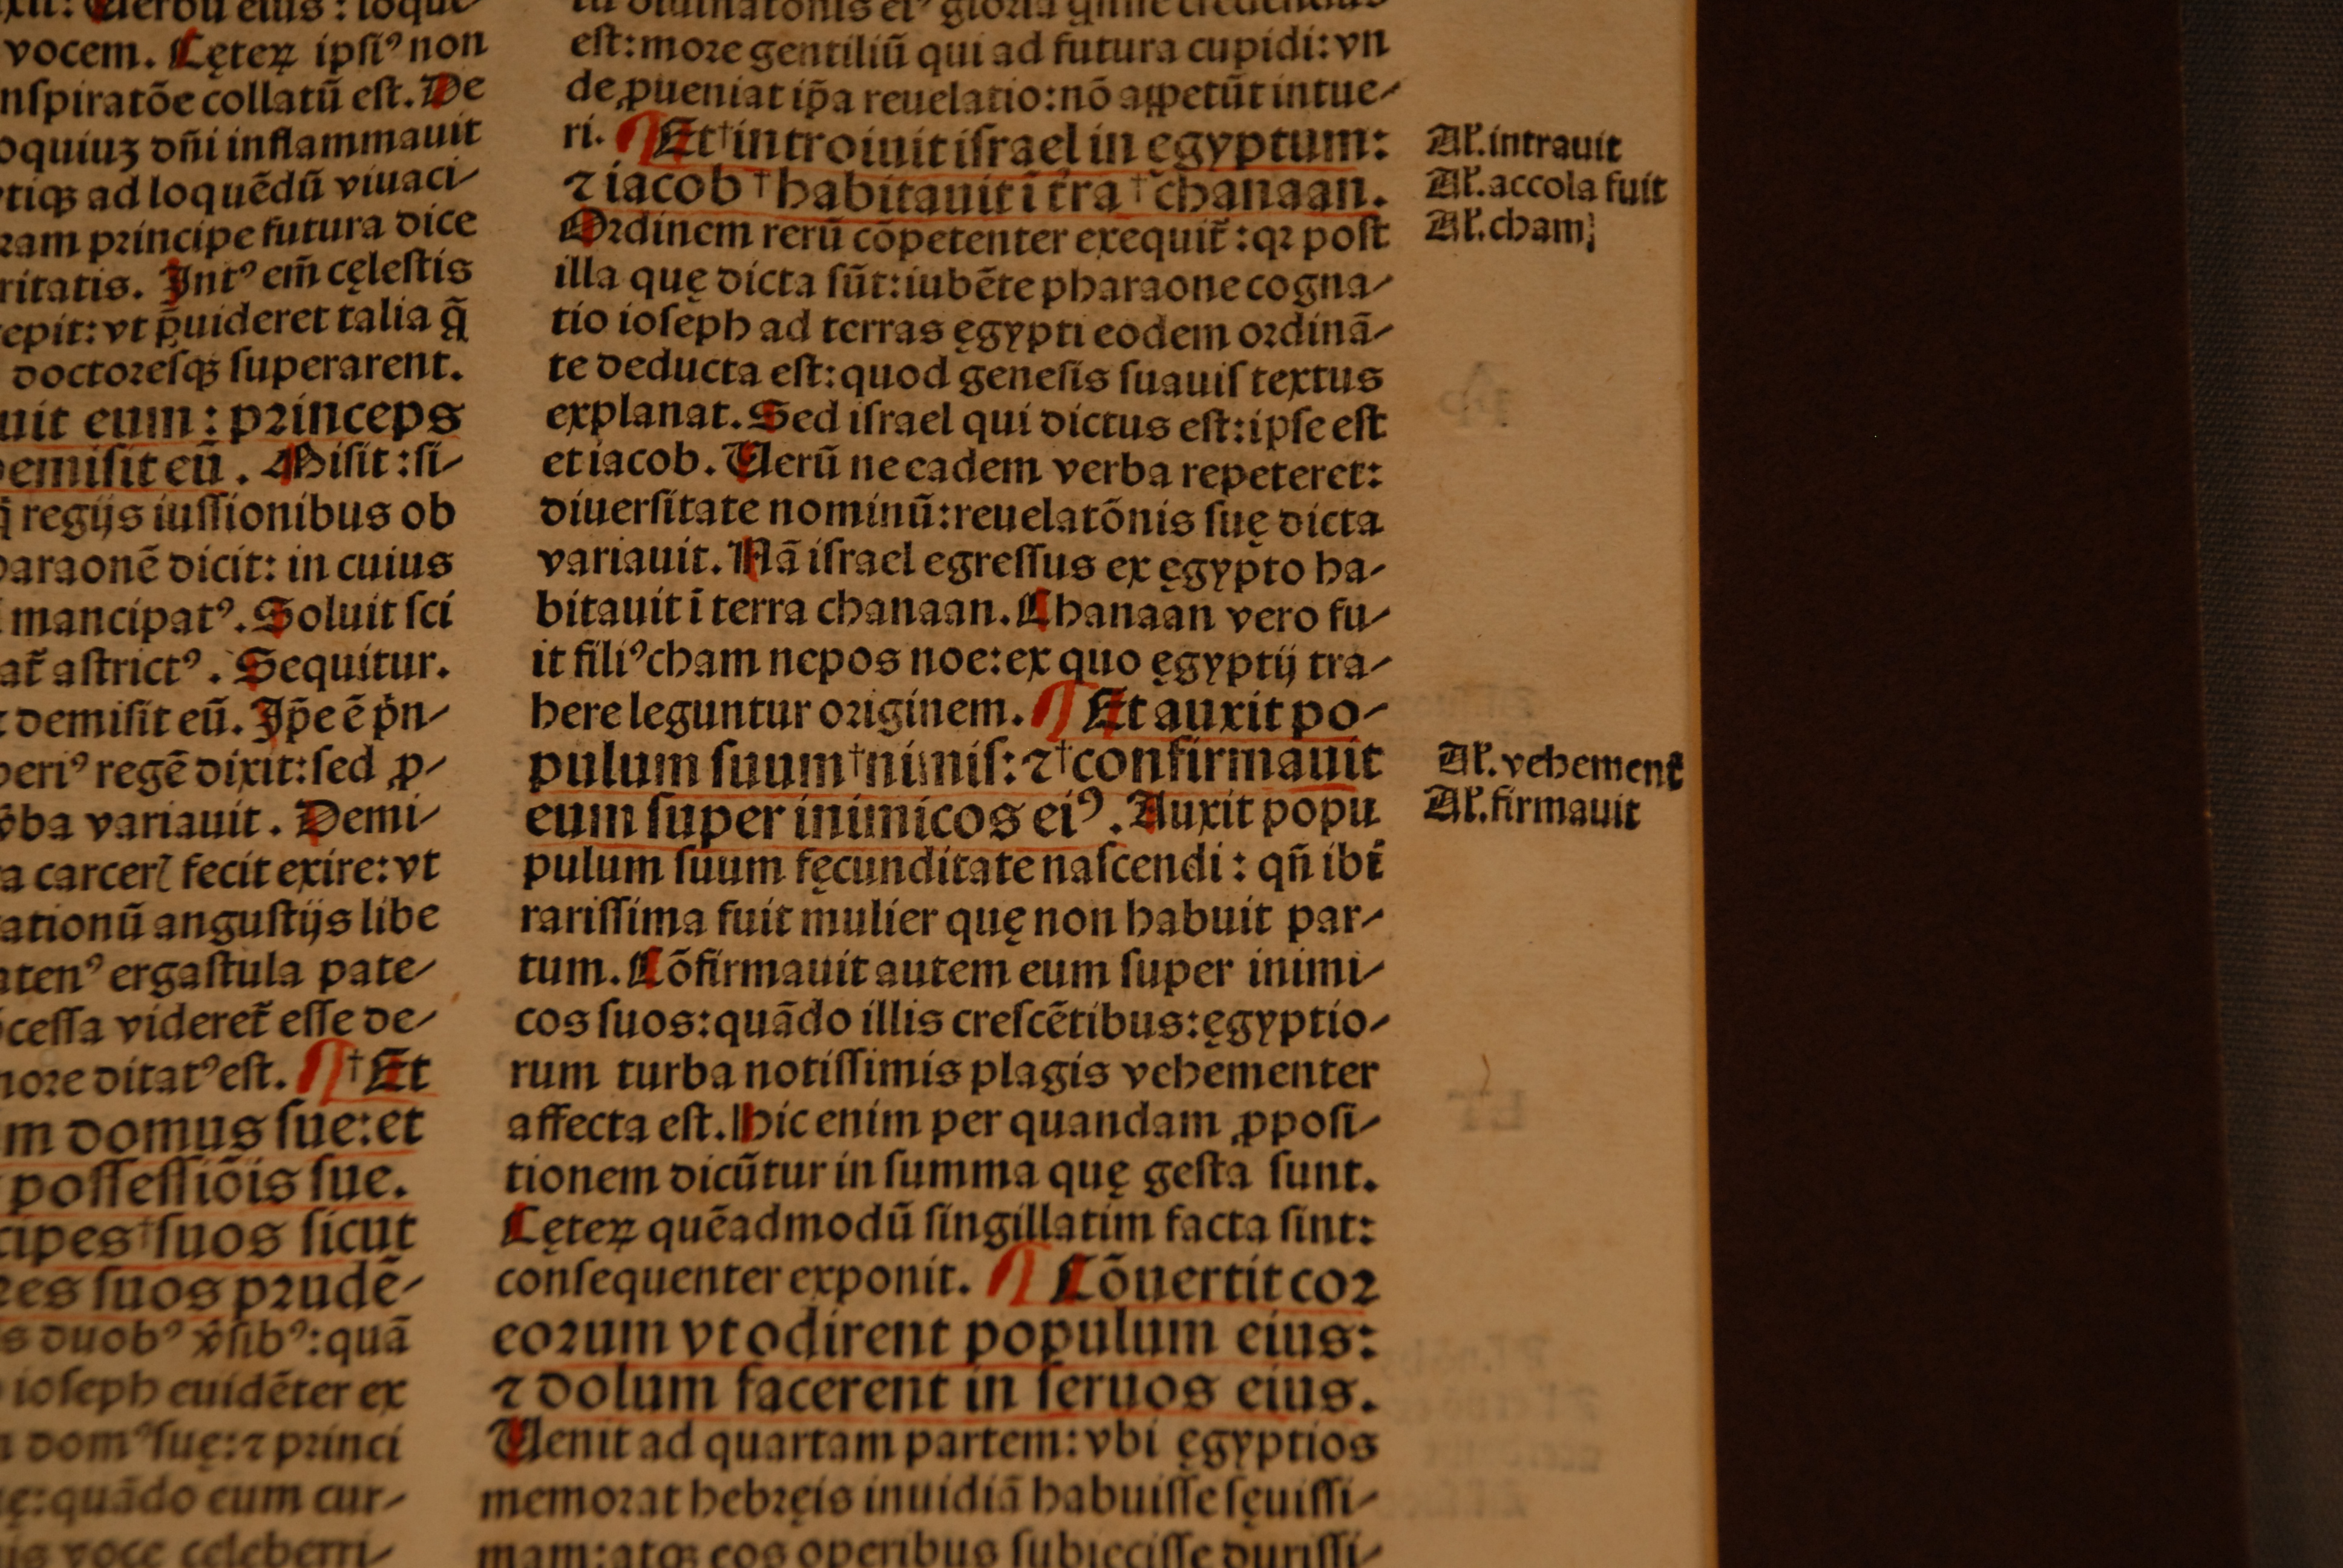 vocem. Cęteꝝ ipſiꝰ non
nſpiratōe collatū eſt. De
oquiuꝫ dñi inflammauit
tiqꝫ ad loquēdū viuaci⸗
ram principe futura dice
ritatis. Intꝰ em̄ cęleſtis
epit: vt p̄uideret talia q̄
doctoreſqꝫ ſuperarent.
uit eum: princeps
emiſit eū. Miſit: ſi⸗
q̄ regijs iuſſionibus ob
araonē dicit: in cuius
mancipatꝰ. Soluit ſci
at̄ aſtrictꝰ. Sequitur.
demiſit eū. Ip̄e ē pⁱn⸗
periꝰ regē dixit: ſed ꝓ⸗
v̄ba variauit. Demi⸗
a carcerꝭ fecit exire: vt
ationū anguſtijs libe
atenꝰ ergaſtula pate⸗
ceſſa videret̄ eſſe de⸗
more ditatꝰ eſt. ¶ †Et
m domus ſue: et
poſſeſſiōis ſue.
cipes †ſuos ſicut
res ſuos prudē⸗
s duobꝰ v̄ſibꝰ: quā
ioſeph euidēter ex
domꝰ ſuę: ⁊ princi
ę: quādo eum cur⸗
is voce celeberri⸗
eſt: more gentiliū qui ad futura cupidi: vn
de ꝓueniat ip̄a reuelatio: nō aſpetūt intue⸗
ri. ¶ Et †introiuit iſrael in ęgyptum:
⁊ iacob †habitauit ī tr̄a †chanaan.
Ordinem rerū cōpetenter exequit̄: qꝛ poſt
illa quę dicta ſūt: iubēte pharaone cogna⸗
tio ioſeph ad terras ęgypti eodem ordinā⸗
te deducta eſt: quod geneſis ſuauiſ textus
explanat. Sed iſrael qui dictus eſt: ipſe eſt
et iacob. Verū ne eadem verba repeteret:
diuerſitate nominū: reuelatōnis ſuę dicta
variauit. Nā iſrael egreſſus ex ęgypto ha⸗
bitauit ī terra chanaan. Chanaan vero fu⸗
it filiꝰ cham nepos noe: ex quo ęgyptij tra⸗
here leguntur originem. ¶ Et auxit po⸗
pulum ſuum †nimiſ: ⁊ †confirmauit
eum ſuper inimicos eiꝰ. Auxit popu
pulum ſuum fęcunditate naſcendi: qñ ibi
rariſſima fuit mulier quę non habuit par⸗
tum. Cōfirmauit autem eum ſuper inimi⸗
cos ſuos: quādo illis creſcētibus: ęgyptio⸗
rum turba notiſſimis plagis vehementer
affecta eſt. Hic enim per quandam ꝓpoſi⸗
tionem dicūtur in ſumma quę geſta ſunt.
Cęteꝝ quēadmodū ſingillatim facta ſint:
conſequenter exponit. ¶ Cōuertit cor
eorum vt odirent populum eius:
⁊ dolum facerent in ſeruos eius.
Venit ad quartam partem: vbi ęgyptios
memorat hebręis inuidiā habuiſſe ſęuiſſi⸗
mam: atqꝫ eos operibus ſubieciſſe duriſſi⸗
Al̓. intrauit
Al̓. accola fuit
Al̓. cham
Al̓. vehement̄
Al̓. firmauit